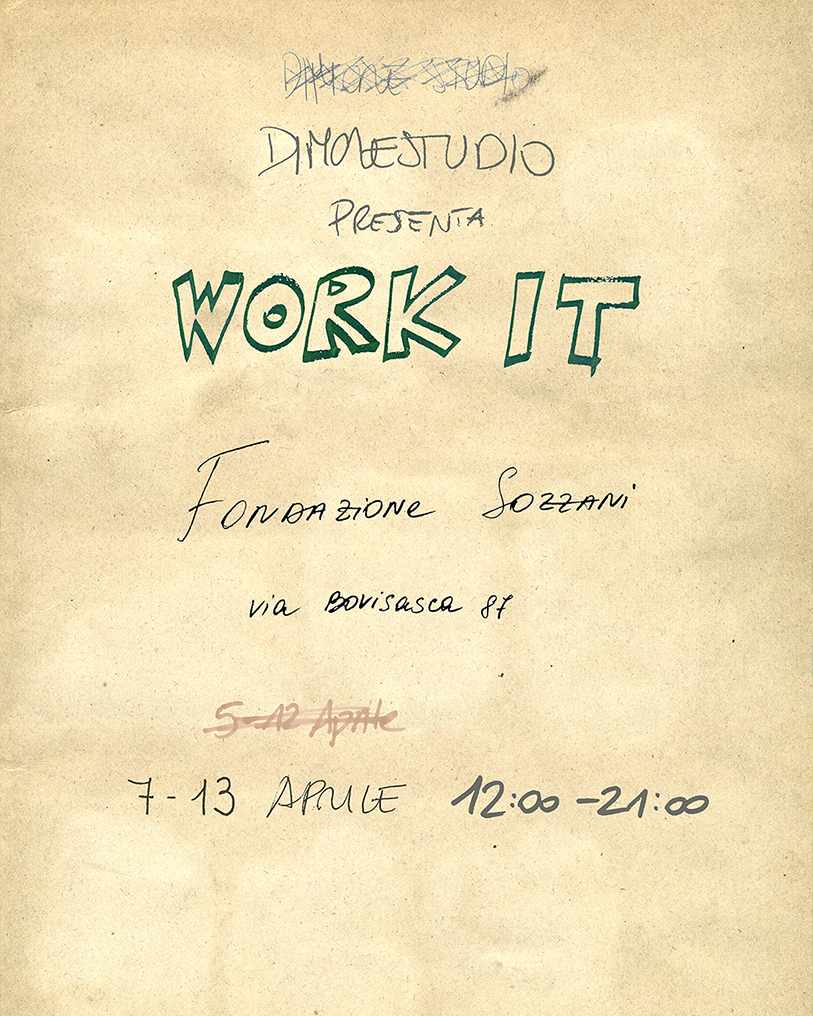 DIMORESTUDIO
PRESENTA
WORK IT
Fondazione Sozzani
via Bovisasca 87
5-12 Aprile
7-13 APRILE 12:00-21:00